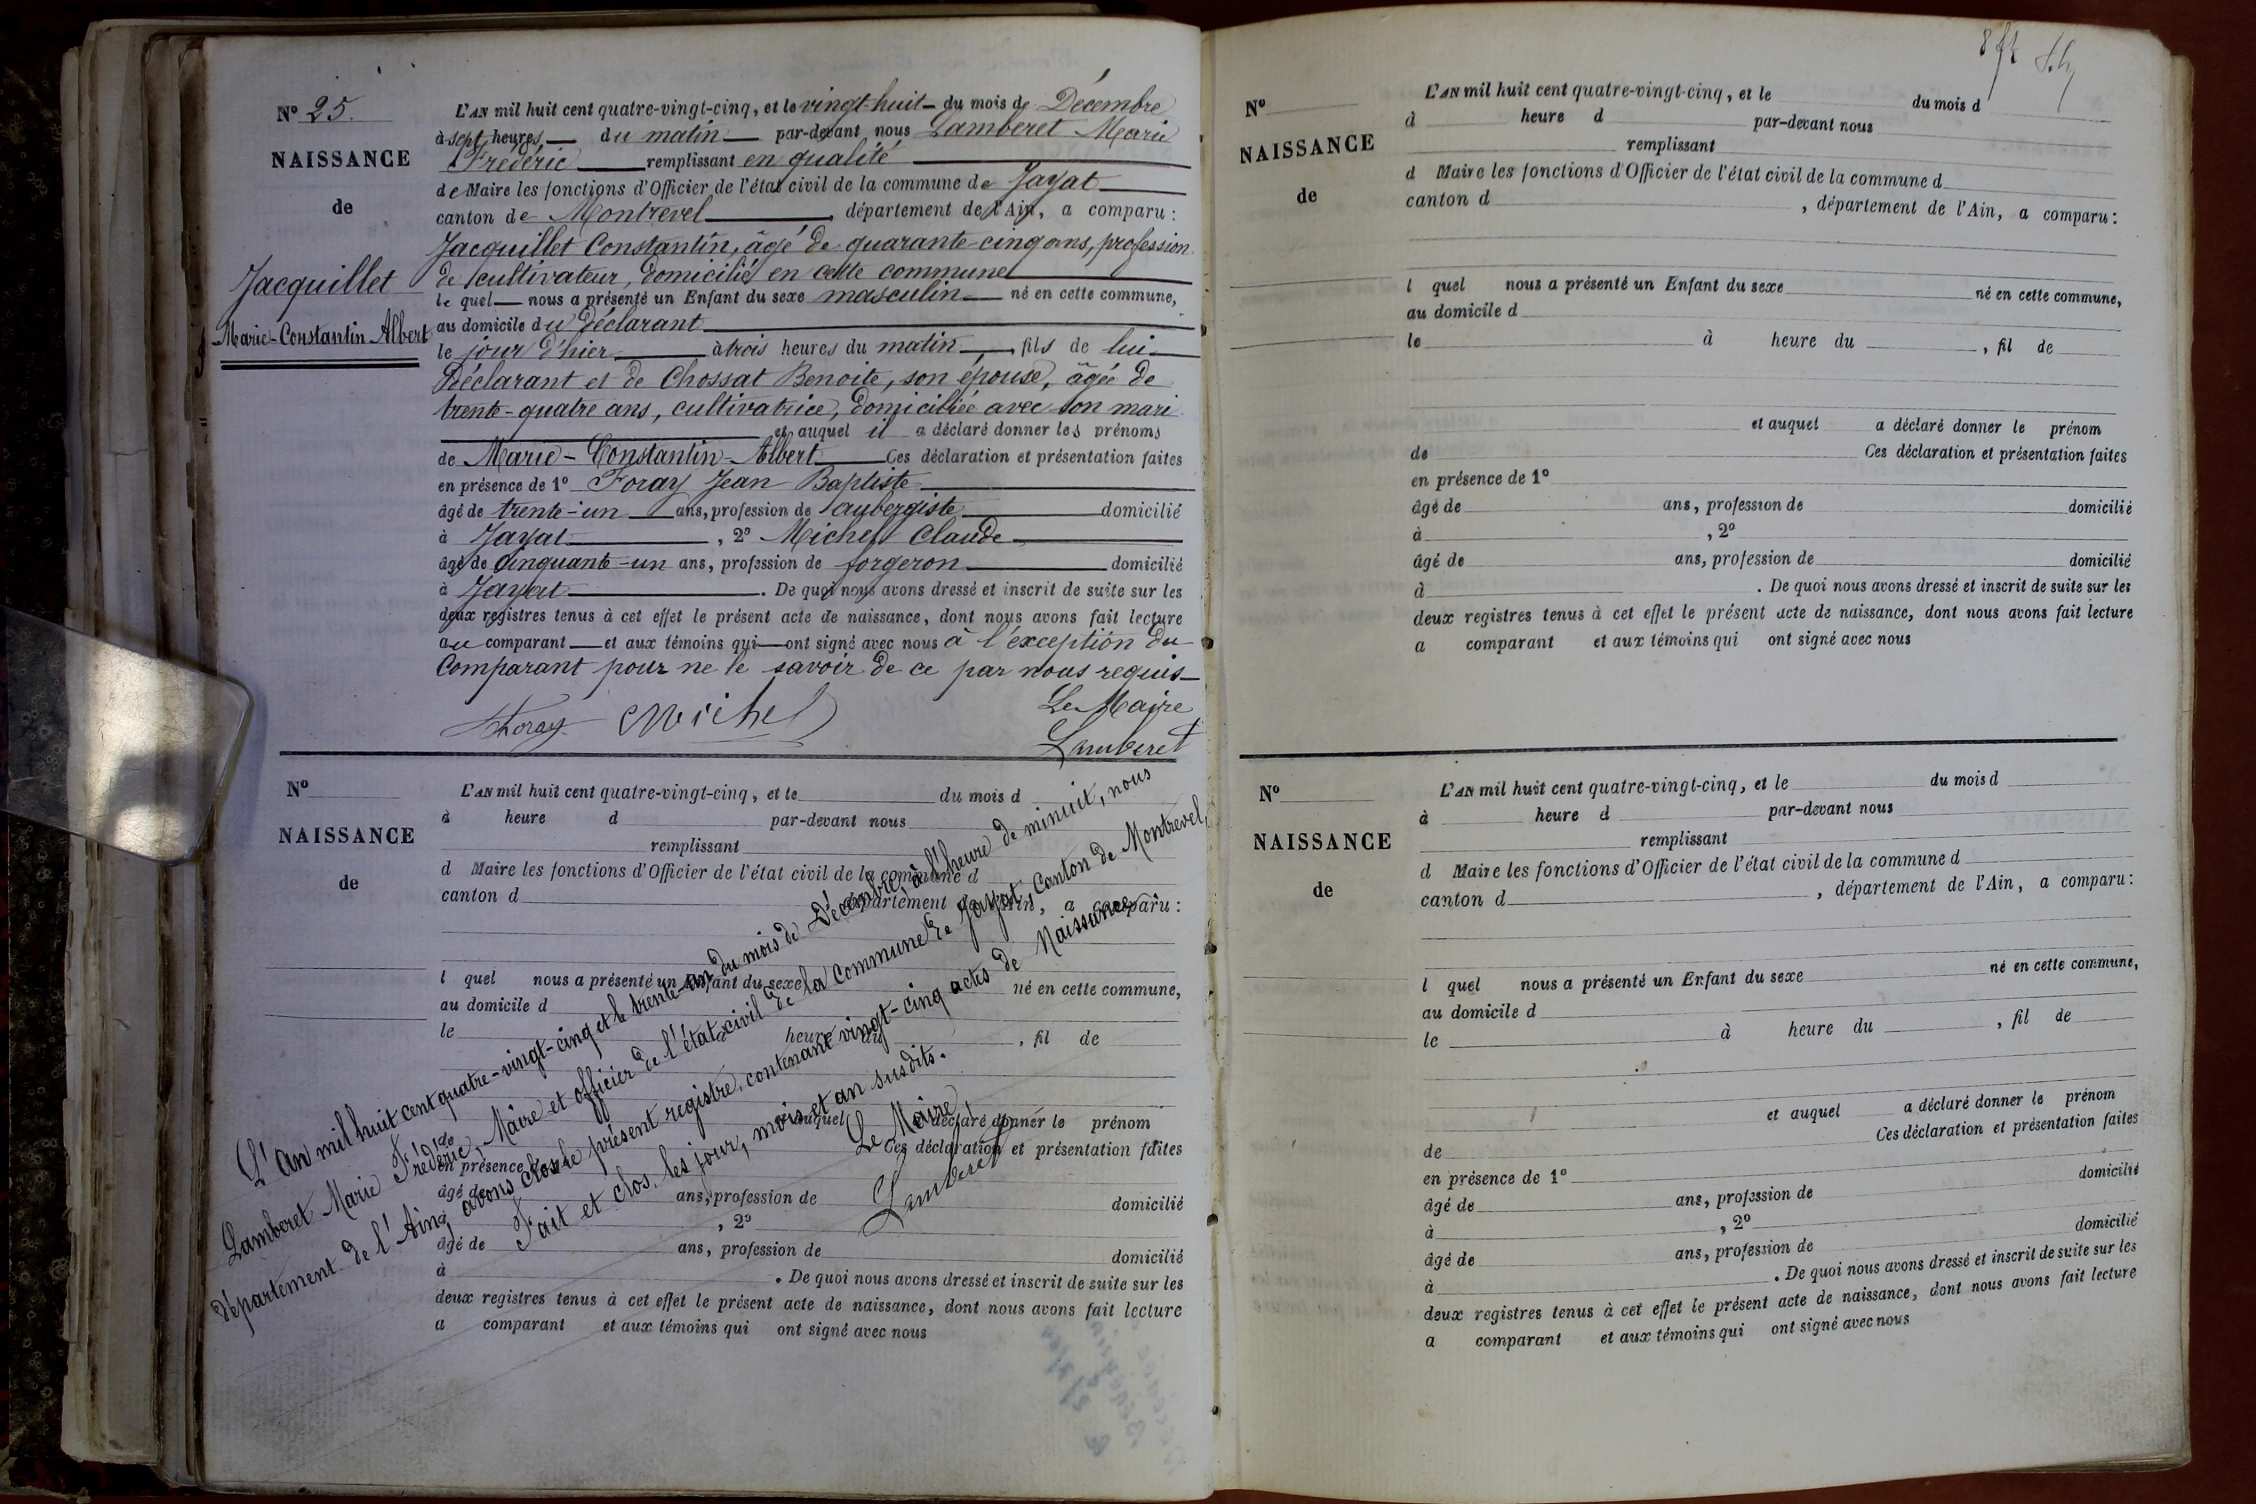 Nº 25.
NAISSANCE
de
Jacquillet
Marie-Constantin Albert
L'AN mil huit cent quatre-vingt-cinq, et le vingt-huit du mois de Décembre
à sept heures, du matin par-devant nous Lamberet Marie
Frédéric remplissant en qualité
de Maire les fonctions d'Officier de l'état civil de la commune de Jayat
canton de Montrevel, département de l'Ain, a comparu :
Jacquillet Constantin, âgé de quarante-cinq ans, profession
de cultivateur, domicilié en cette commune
lequel nous a présenté un Enfant du sexe masculin né en cette commune,
au domicile du déclarant
le jour d'hier à trois heures du matin, fils de lui
Déclarant et de Chossat Benoite, son épouse, âgée de
trente-quatre ans, cultivatrice, domiciliée avec son mari
et auquel il a déclaré donner les prénoms
de Marie-Constantin-Albert Ces déclaration et présentation faites
en présence de 1º Foray Jean Baptiste
âgé de trente-un ans, profession de aubergiste domicilié
à Jayat, 2º Michel Claude
âgé de cinquante-un ans, profession de forgeron domicilié
à Jayat. De quoi nous avons dressé et inscrit de suite sur les
deux registres tenus à cet effet le présent acte de naissance, dont nous avons fait lecture
au comparant et aux témoins qui ont signé avec nous à l'exception du
Comparant pour ne le savoir de ce par nous requis
Foray Michel Le Maire
Lamberet
Nº
NAISSANCE
de
L'AN mil huit cent quatre-vingt-cinq, et le du mois d
à heure d par-devant nous
remplissant
d Maire les fonctions d'Officier de l'état civil de la commune d
canton d département de l'Ain, a comparu :
l quel nous a présenté un Enfant du sexe né en cette commune,
au domicile d
le à heure du , fil de
et auquel a déclaré donner le prénom
de Ces déclaration et présentation faites
en présence de 1º
âgé de ans, profession de domicilié
à , 2º
âgé de ans, profession de domicilié
à . De quoi nous avons dressé et inscrit de suite sur les
deux registres tenus à cet effet le présent acte de naissance, dont nous avons fait lecture
a comparant et aux témoins qui ont signé avec nous
L'an mil huit cent quatre-vingt-cinq et le trente-un du mois de Décembre, à l'heure de minuit, nous
Lamberet Marie Frédéric, Maire et officier de l'état civil de la commune de Jayat, Canton de Montrevel,
département de l'Ain, avons clos le présent registre, contenant vingt-cinq actes de Naissance.
Fait et clos, les jour, mois et an susdits.
Le Maire
Lamberet
Nº
NAISSANCE
de
L'AN mil huit cent quatre-vingt-cinq, et le du mois d
à heure d par-devant nous
remplissant
d Maire les fonctions d'Officier de l'état civil de la commune d
canton d , département de l'Ain, a comparu :
l quel nous a présenté un Enfant du sexe né en cette commune,
au domicile d
le à heure du , fil de
et auquel a déclaré donner le prénom
de Ces déclaration et présentation faites
en présence de 1º
âgé de ans, profession de domicilié
à , 2º
âgé de ans, profession de domicilié
à . De quoi nous avons dressé et inscrit de suite sur les
deux registres tenus à cet effet le présent acte de naissance, dont nous avons fait lecture
a comparant et aux témoins qui ont signé avec nous
Nº
NAISSANCE
de
L'AN mil huit cent quatre-vingt-cinq, et le du mois d
à heure d par-devant nous
remplissant
d Maire les fonctions d'Officier de l'état civil de la commune d
canton d , département de l'Ain, a comparu :
l quel nous a présenté un Enfant du sexe né en cette commune,
au domicile d
le à heure du , fil de
et auquel a déclaré donner le prénom
de Ces déclaration et présentation faites
en présence de 1º
âgé de ans, profession de domicilié
à , 2º
âgé de ans, profession de domicilié
à . De quoi nous avons dressé et inscrit de suite sur les
deux registres tenus à cet effet le présent acte de naissance, dont nous avons fait lecture
a comparant et aux témoins qui ont signé avec nous